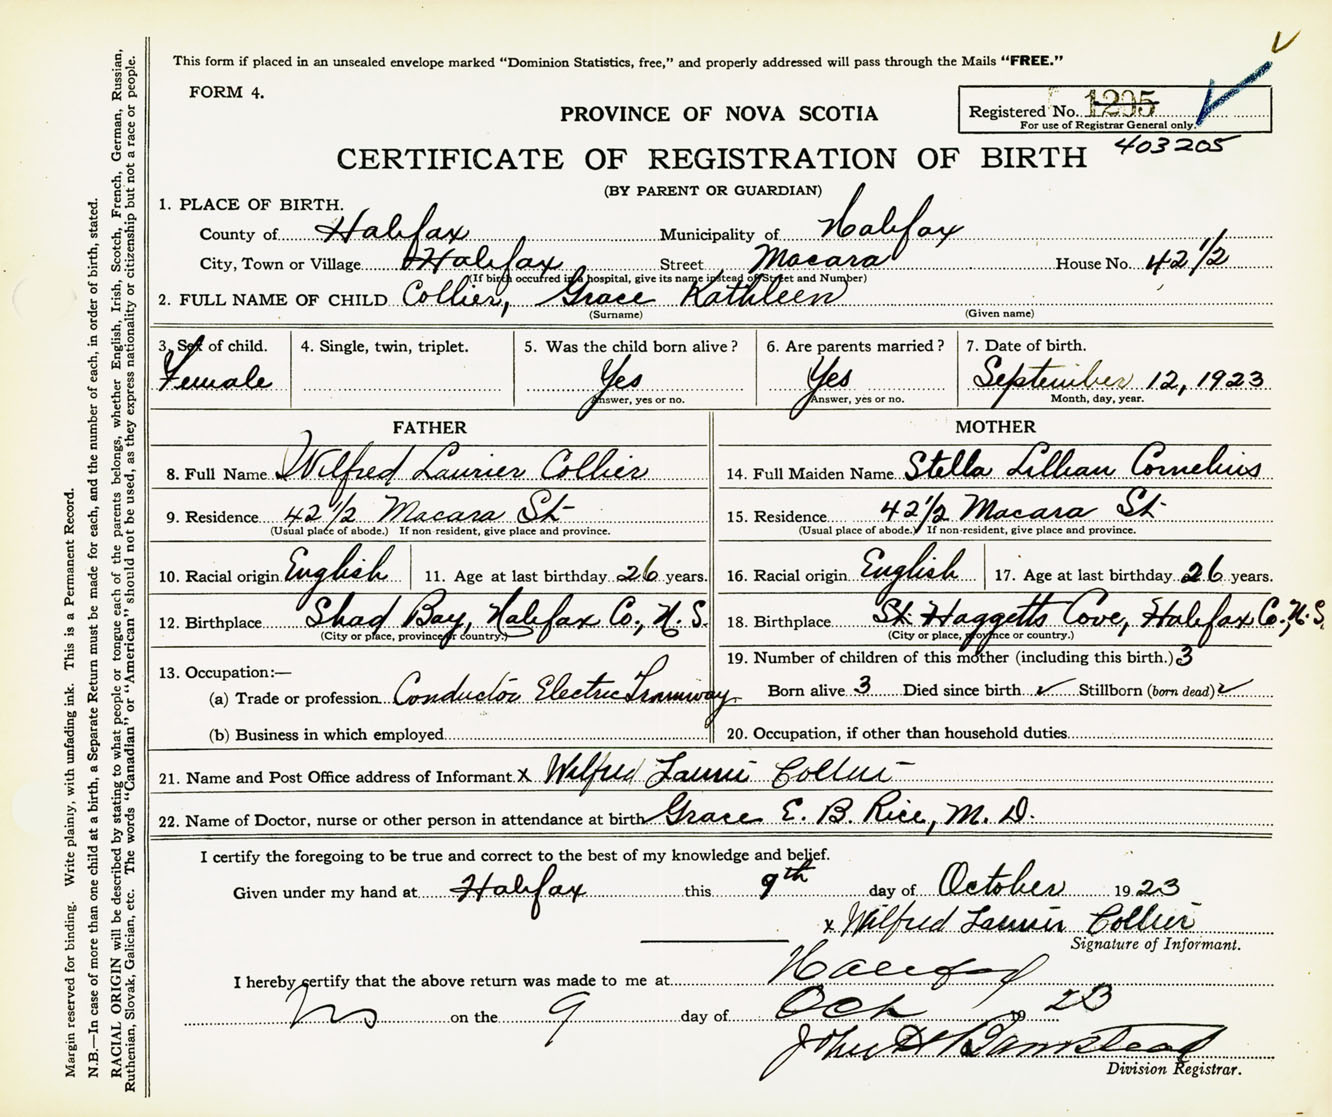 This form if placed in an unsealed envelope marked "Dominion Statistics, free," and properly addressed will pass through the Mails "FREE."
FORM 4.
PROVINCE OF NOVA SCOTIA
Registered No. 1205
For use of Registrar General only.
403205
CERTIFICATE OF REGISTRATION OF BIRTH
(BY PARENT OR GUARDIAN)
1. PLACE OF BIRTH.
County of Halifax Municipality of Halifax
City, Town or Village Halifax Street Macara House No. 42 1/2
(If birth occurred in a hospital, give its name instead of Street and Number)
2. FULL NAME OF CHILD Collier, Grace Kathleen
(Surname) (Given name)
3. Sex of child. 4. Single, twin, triplet. 5. Was the child born alive? 6. Are parents married? 7. Date of birth.
Female Yes Yes September 12, 1923
Answer, yes or no. Answer, yes or no. Month, day, year.
FATHER MOTHER
8. Full Name Wilfred Laurier Collier 14. Full Maiden Name Stella Lillian Cornelius
9. Residence 42 1/2 Macara St 15. Residence 42 1/2 Macara St
(Usual place of abode.) If non-resident, give place and province. (Usual place of abode.) If non-resident, give place and province.
10. Racial origin English 11. Age at last birthday 26 years. 16. Racial origin English 17. Age at last birthday 26 years.
12. Birthplace Shad Bay, Halifax Co., N.S. 18. Birthplace St. Haggetts Cove, Halifax Co., N.S.
(City or place, province or country.) (City or place, province or country.)
19. Number of children of this mother (including this birth.) 3
13. Occupation:—
(a) Trade or profession Conductor Electric Tramway Born alive 3 Died since birth ✓ Stillborn (born dead) ✓
(b) Business in which employed 20. Occupation, if other than household duties
21. Name and Post Office address of Informant x Wilfred Laurier Collier
22. Name of Doctor, nurse or other person in attendance at birth Grace E. B. Rice, M. D.
I certify the foregoing to be true and correct to the best of my knowledge and belief.
Given under my hand at Halifax this 9th day of October 1923
x Wilfred Laurier Collier
Signature of Informant.
I hereby certify that the above return was made to me at Halifax
NS on the 9 day of Oct 1923
John H Barnstead
Division Registrar.
Margin reserved for binding. Write plainly, with unfading ink. This is a Permanent Record.
N.B.—In case of more than one child at a birth, a Separate Return must be made for each, and the number of each, in order of birth, stated.
RACIAL ORIGIN will be described by stating to what people or tongue each of the parents belongs, whether English, Irish, Scotch, French, German, Russian,
Ruthenian, Slovak, Galician, etc. The words "Canadian" or "American" should not be used, as they express nationality or citizenship but not a race or people.